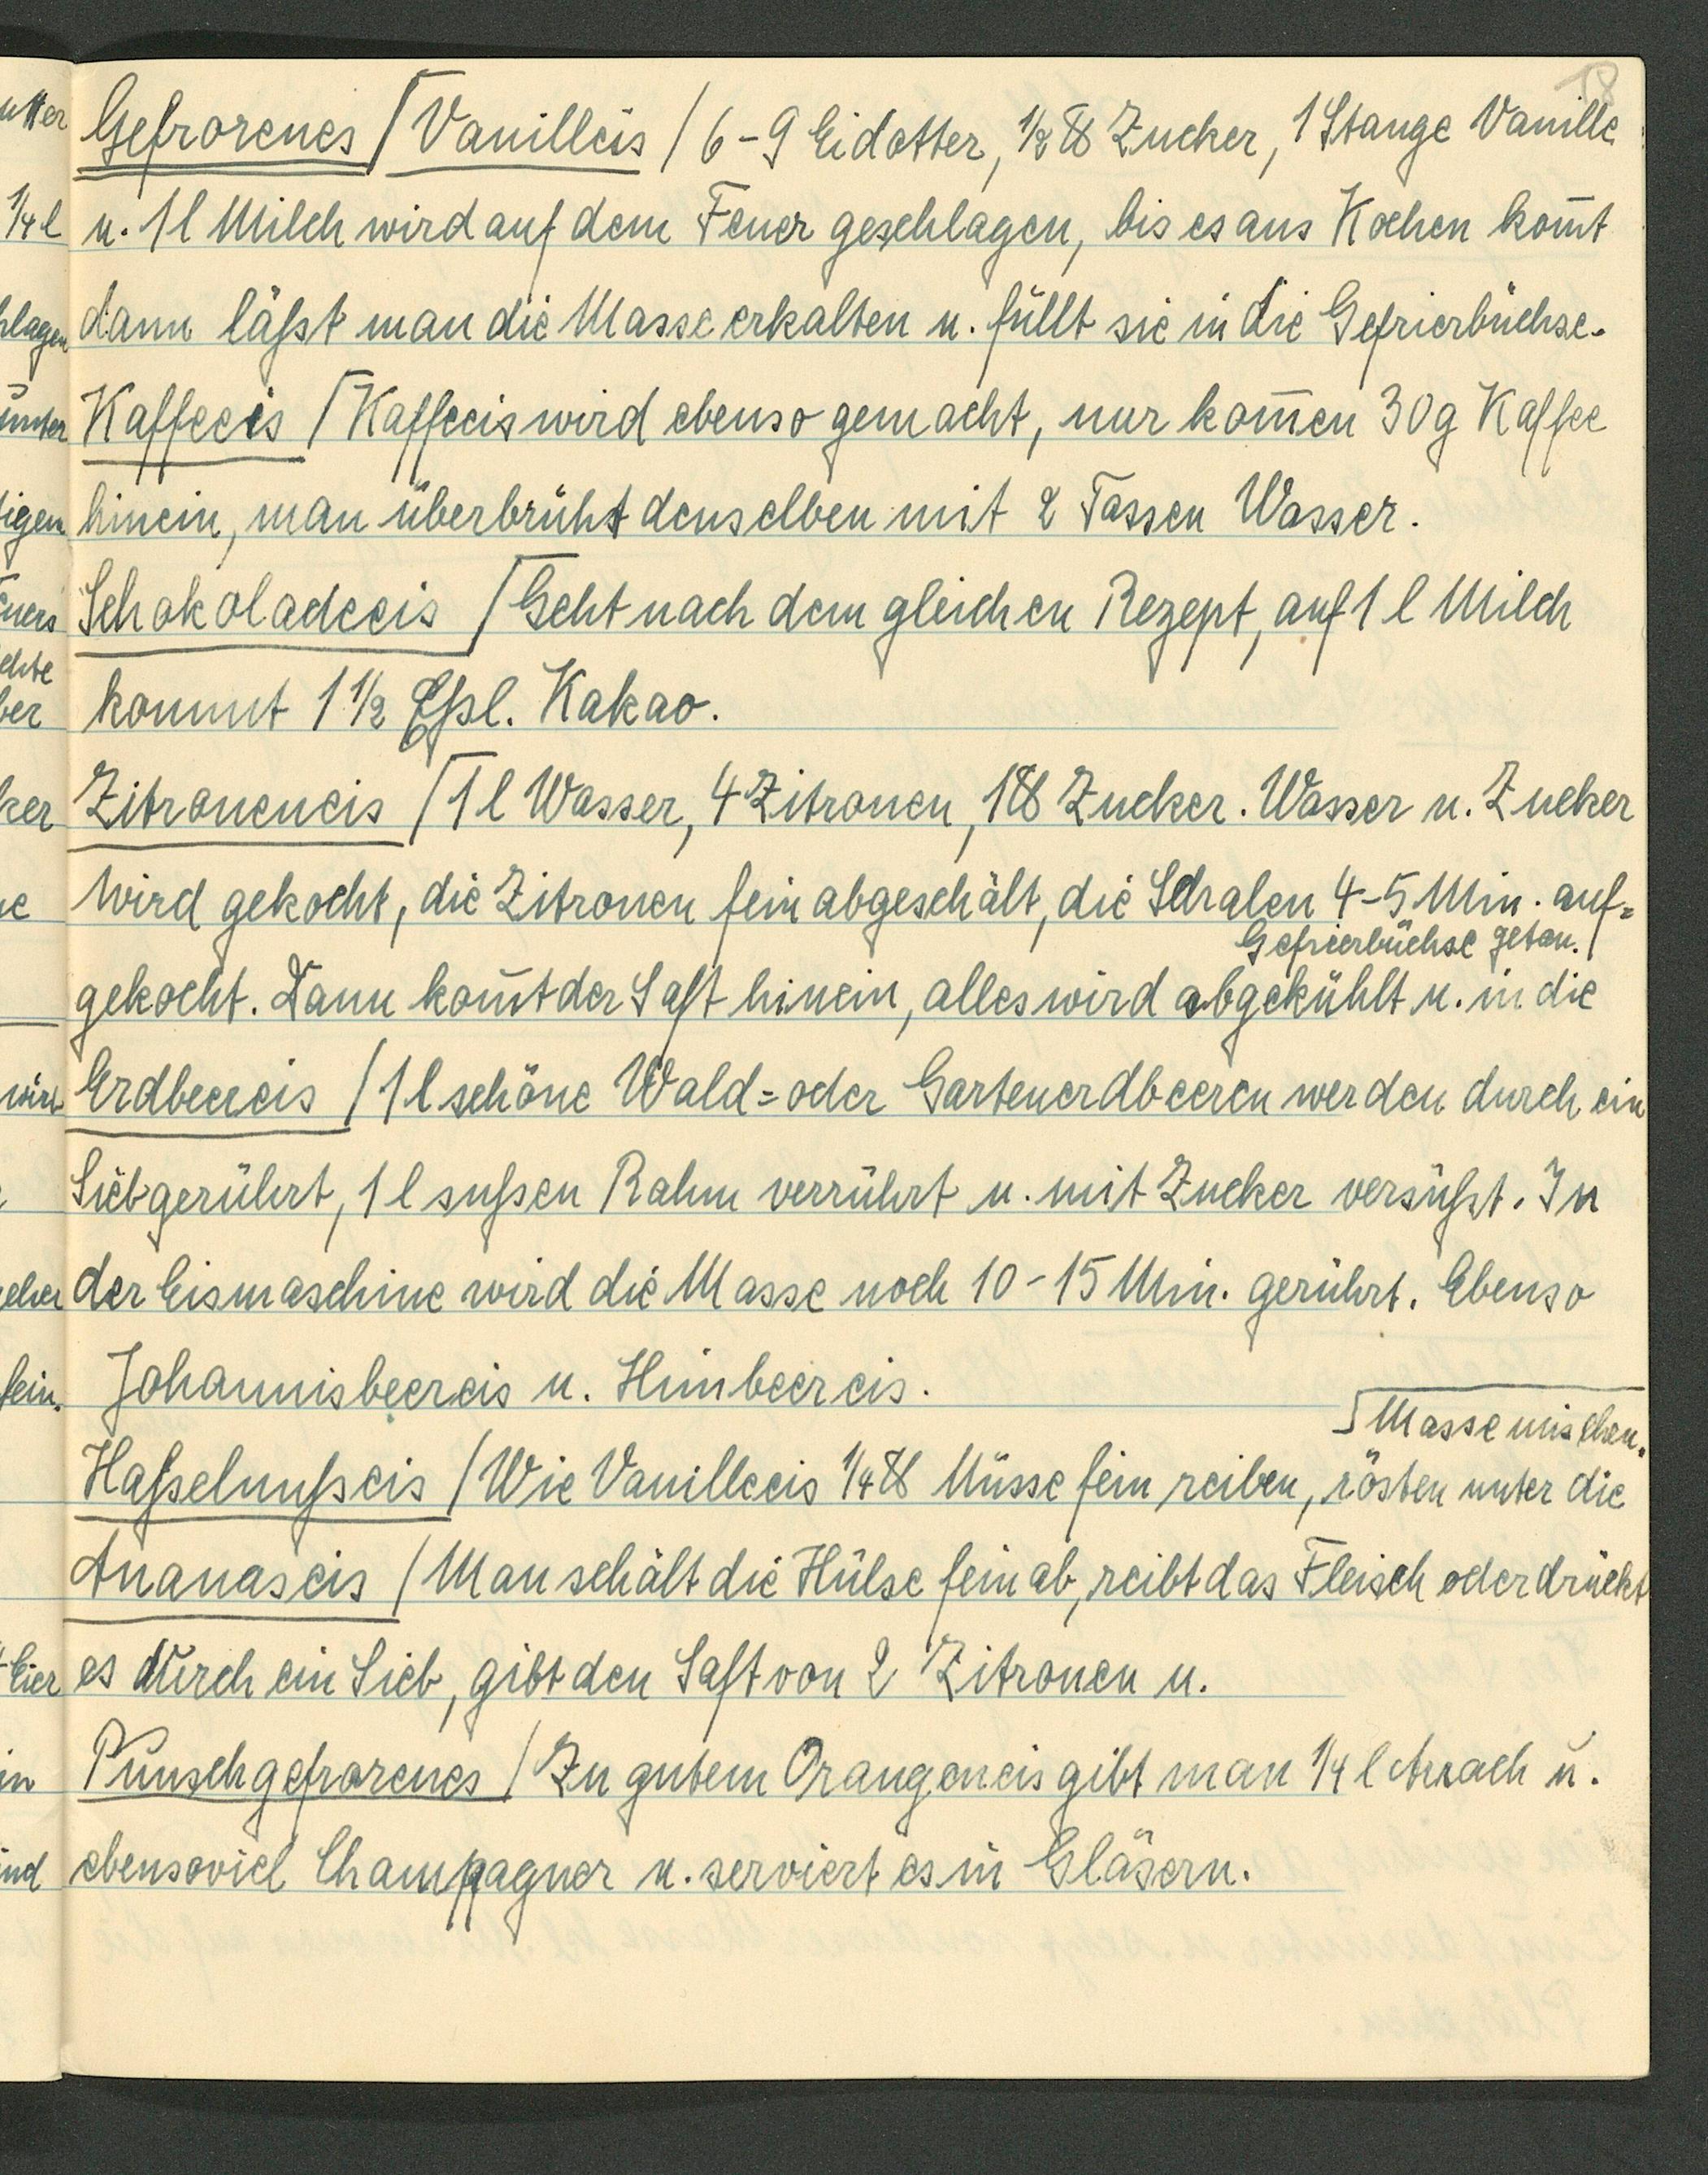 18
Gefrorenes / Vanilleis / 6-9 Eidotter, ½ ℔ Zucker, 1 Stange Vanille
u. 1 l Milch wird auf dem Feuer geschlagen, bis es ans Kochen kom̄t
dann läßt man die Masse erkalten u. füllt sie in die Gefrierbüchse.
Kaffeeis / Kaffeeis wird ebenso gemacht, nur kom̄en 30 g Kaffee
hinein, man überbrüht denselben mit 2 Tassen Wasser.
Schokoladeeis / Geht nach dem gleichen Rezept, auf 1 l Milch
kommt 1 ½ Eßl. Kakao.
Zitroneneis / 1 l Wasser, 4 Zitronen, 1 ℔ Zucker. Wasser u. Zucker
wird gekocht, die Zitronen fein abgeschält, die Schalen 4-5 Min. auf=
gekocht. Dann kom̄t der Saft hinein, alles wird abgekühlt u. in die
Gefrierbüchse getan.
Erdbeereis / 1 l schöne Wald= oder Gartenerdbeeren werden durch ein
Sieb gerührt, 1 l sußen Rahm verrührt u. mit Zucker versüßt. In
der Eismaschine wird die Masse noch 10-15 Min. gerührt. Ebenso
Johannisbeereis u. Himbeereis.
Haßelnußeis / Wie Vanilleeis ¼ ℔ Nüsse fein reiben, rösten unter die
Masse mischen.
Ananaseis / Man schält die Hülse fein ab, reibt das Fleisch oder drückt
es durch ein Sieb, gibt den Saft von 2 Zitronen u.
Punschgefrorenes / Zu gutem Orangeneis gibt man ¼ l Arrach u.
ebensoviel Champagner u. serviert es in Gläsern.